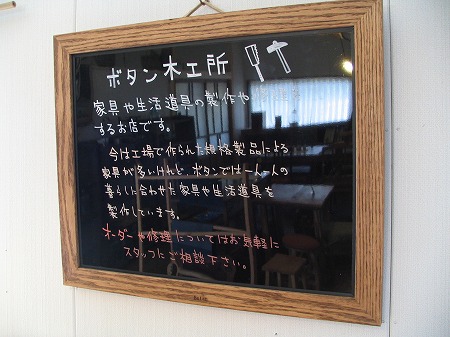 ボタン木工所
家具や生活道具の製作や修理を
するお店です。
今は工場で作られた規格製品による
家具が多いけれど、ボタンでは一人一人の
暮らしに合わせた家具や生活道具を
製作しています。
オーダーや修理についてはお気軽に
スタッフにご相談下さい。